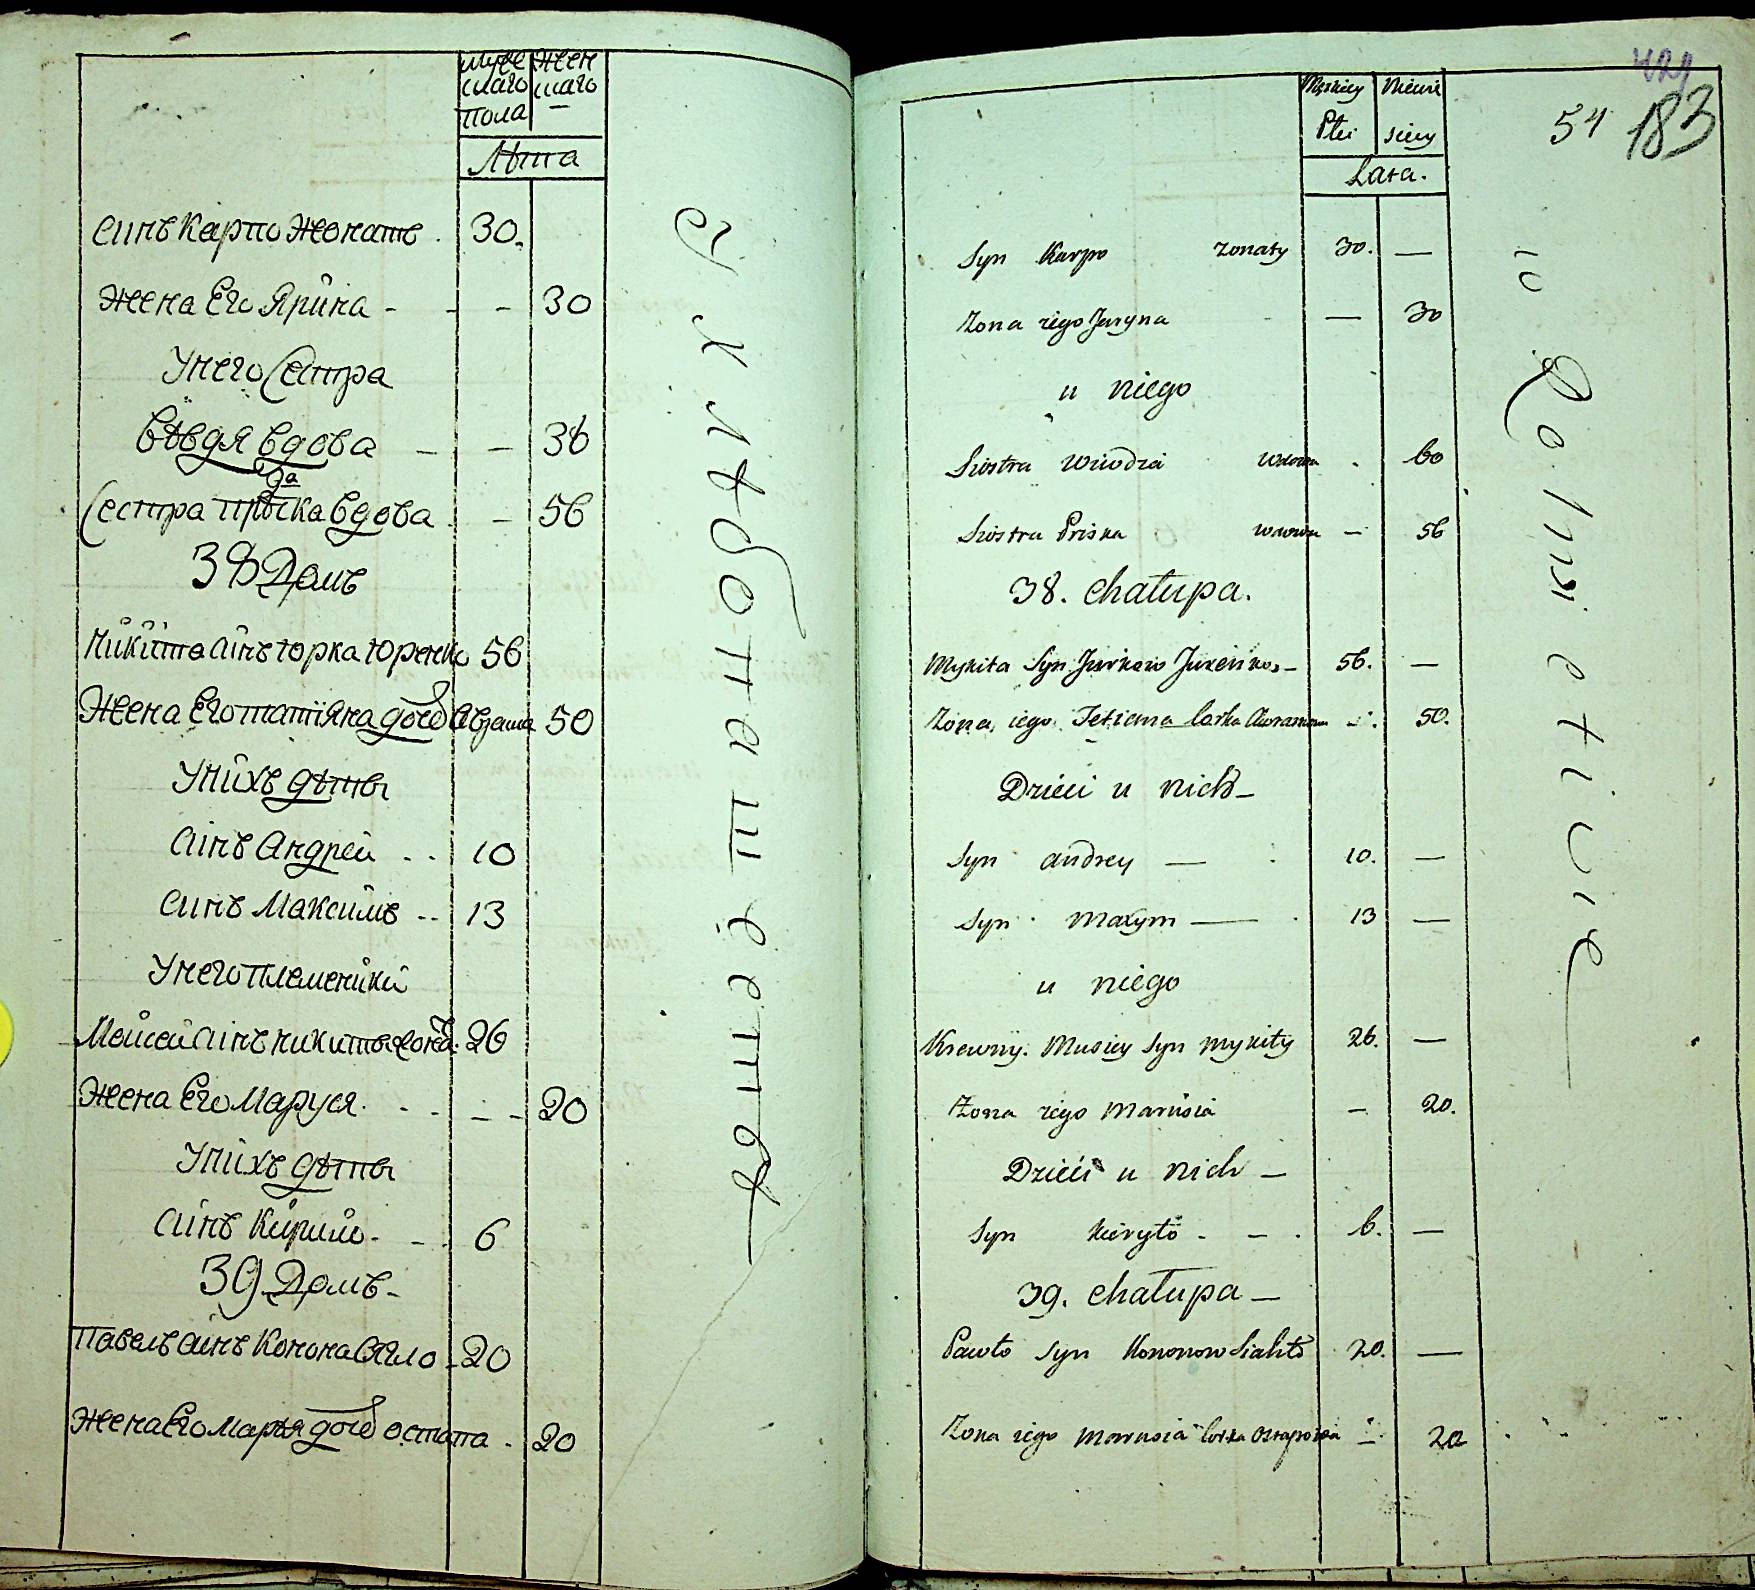 муже
скаго
пола
жен
скаго
Лѣта
синъ Карпо Жонатъ. 30.
Жена Его Ярина - - - 30
У него Сестра
Вѣвдя вдова - - 38
Сестра Прѣска вдова - 56
38 Домъ
Никита синъ Юрка Юренко 56
Жена Его татіяна дочь Аврама 50
У нихъ дѣты
синъ Андрей - - 10
синъ Максимъ - - 13
У него племеники
Мойсей синъ никиты 26
Жена Его Маруся - - - - 20
У нихъ дѣты
синъ Кирило - - 6
39 Домъ -
Павелъ синъ Конона Сягло - 20
Жена Его Марья дочь остапа - 20
Хлѣбопашество
Męskiey
Płci
Niewie
sciey
54
183
Lata.
Syn Karpo zonaty 30. —
Zona iego Jaryna - — 30
u niego
Siostra Wiwdzia wdowa - 60
Siostra Priska wdowa — 56
38. chałupa.
Mykita Syn Jurkow Jurenko - 56. —
Zona iego Tetiana Corka Awramowa - 50.
Dzieci u nich -
Syn andrey — 10. —
Syn Maxym — 13 —
u niego
Krewny. Musiey Syn Mykity 26. —
Zona iego Marusia — 20.
Dzieci u nich —
Syn Kiryło - - . 6. —
39. chałupa —
Pawło Syn Kononow Siahło 20. —
Zona iego Marusia Corka Ostapowa - 20
w Rolnictwie